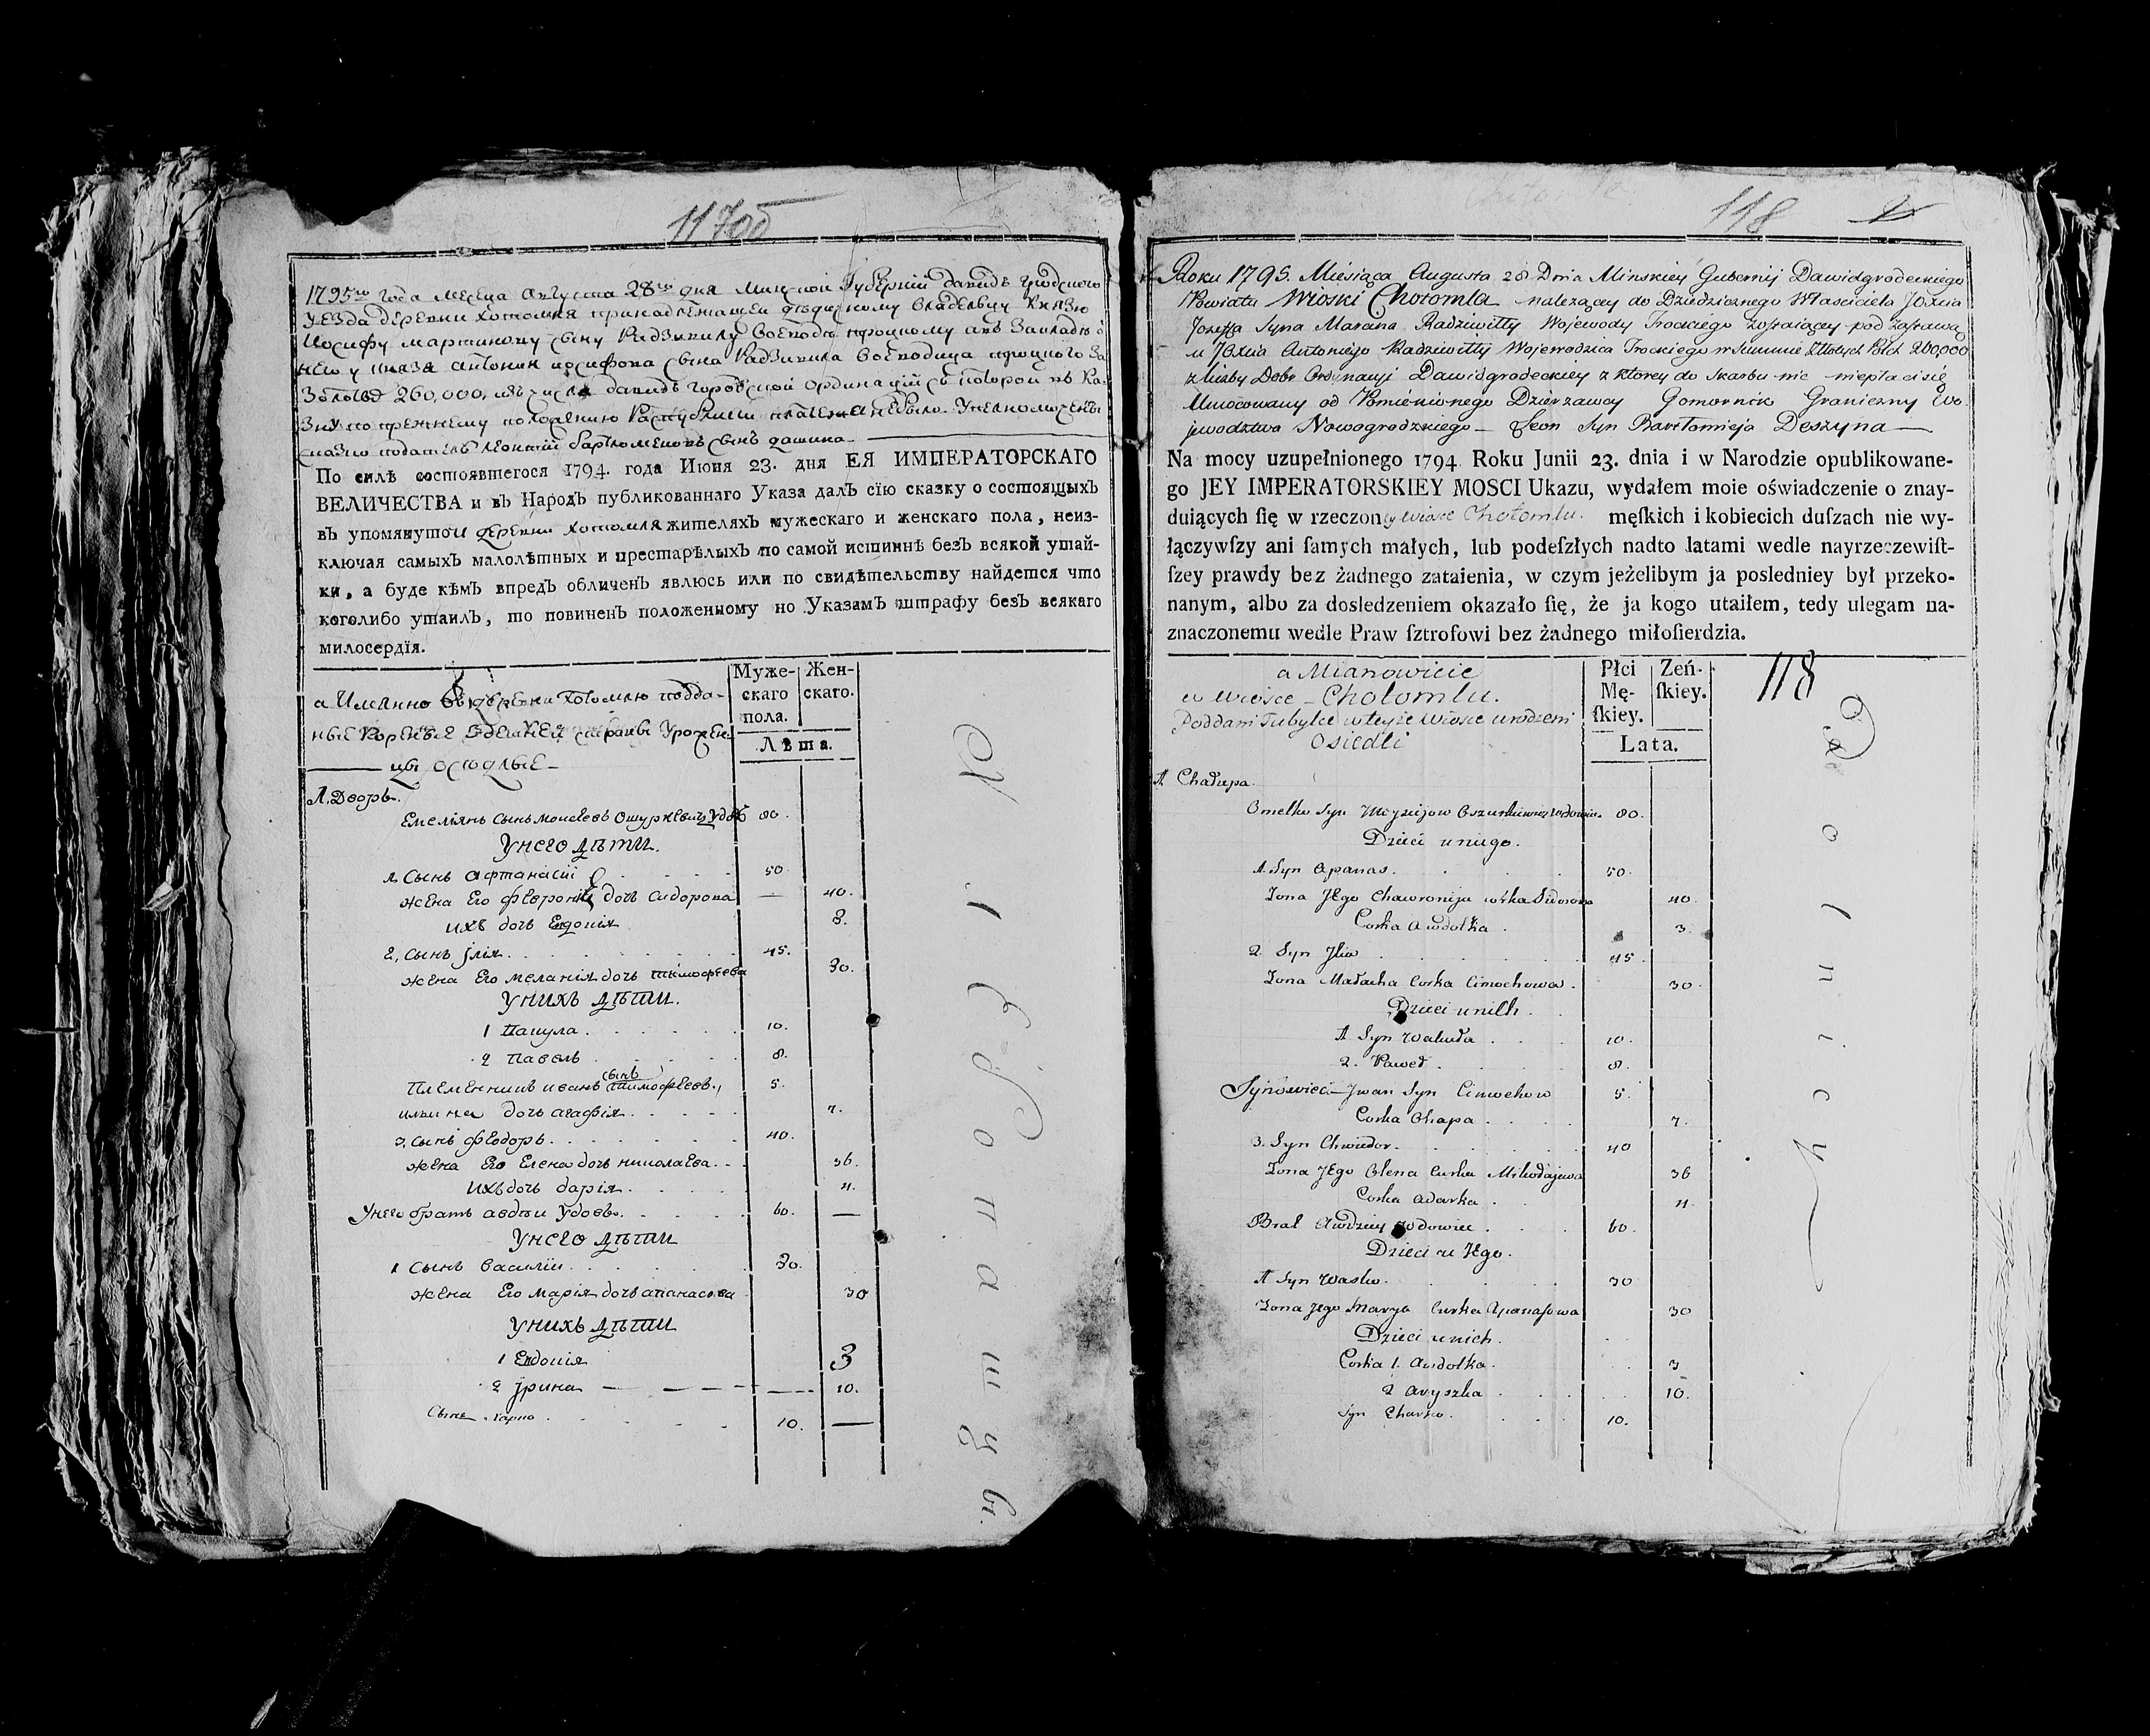 117об
1795го года месеца Августа 28го дня Минской Губернии давидъ Гродского
уезда деревни хотомля принадлежащей дедичному владельцу Князю
Иосифу мартинову сыну Радзивилу воеводе троцкому а въ закладе у
него у князя антония иосифова сына Радзивила воеводица троцкого за
злотых 260,000, изъ числа давидъ городской ординации с которой въ ка
зну по прежнему положению платежа небыло. Уполномоченъ
сказко податель леонтий бартломеевъ сынъ дашина
По силѣ состоявшегося 1794. года Июня 23. дня ЕЯ ИМПЕРАТОРСКАГО
ВЕЛИЧЕСТВА и въ Народъ публикованнаго Указа далъ сїю сказку о состоящыхъ
въ упомянутои деревни хотомля жителяхъ мужескаго и женскаго пола, неиз-
ключая самыхъ малолѣтныхъ и престарѣлыхъ по самой истиннѣ безъ всякой утай-
ки, а буде кѣмъ впредъ обличенъ явлюсь или по свидѣтельству найдется что
коголибо утаилъ, то повиненъ положенному по Указамъ штрафу безъ всякаго
милосердїя.
Муже-
скаго
пола.
Жен-
скаго.
Лѣта.
а Имянно въ деревни хотомлю подда-
ные коренные здешней Урожен
цы оседлые
1. Дворъ.
Емелiянъ сынъ моисеевъ Ошуркевичъ Удовъ 80.
Унего дѣти.
1. Сынъ афтанасiй 50
жена Его феврония дочь сидорова — 40.
ихъ дочь Евдокия 3.
2, сынъ iлiя 45.
жена Его меланiя дочь тимофеева 30.
Унихъ дѣти.
1 Пакула 10.
2 Павелъ 8.
Племенникъ иванъ сынъ тимофеевъ, 5.
дочь агафiя 7.
3, сынъ феодоръ 40.
жена Его Елена дочь николаева 36.
Ихъ дочь дарiя 4.
Унего братъ авдѣи Удовъ 60. —
Унего дѣти
1 сынъ василiи 30.
жена Его марiя дочь апанасова 30
Унихъ дѣти
1 Евдокiя 3
2 iрина 10.
Сынъ харко 10. —
118
Roku 1795. Miesiąca Augusta 28 Dnia Minskiey Gubernij Dawidgrodeckiego
Powiatu Wioski Chotomla nalezącey do Dziedzicznego Właściciela JOXcia
Jozeffa Syna Marcina Radziwiłły Wojewody Trockiego zostaiącey pod zastawą
u JOXcia Antoniego Radziwiłły Wojewodzica Trockiego w Summie Złłotych Polch 260,000
z liczby Dobr Ordynacyi Dawidgrodeckiey z ktorey do skarbu nic niepłaci się
Umocowany od Pomienionego Dzierzawcy Gomornik Graniczny Wo
jewodztwa Nowogrodzkiego — Leon Syn Bartłomieja Deszyna
Na mocy uzupełnionego 1794 Roku Junii 23. dnia i w Narodzie opublikowane-
go JEY IMPERATORSKIEY MOSCI Ukazu, wydałem moie oświadczenie o znay-
duiących ſię w rzeczoney wiosce Chotomlu. męſkich i kobiecich duſzach nie wy-
łączywſzy ani ſamych małych, lub podeſzłych nadto latami wedle nayrzeczewiſt-
ſzey prawdy bez żadnego zataienia, w czym jeżelibym ja posledniey był przeko-
nanym, albo za dosledzeniem okazało ſię, że ja kogo utaiłem, tedy ulegam na-
znaczonemu wedle Praw ſztrofowi bez żadnego miłoſierdzia.
Płci
Mę-
ſkiey.
Zeń-
ſkiey.
Lata.
118
a Mianowicie
w wiosce Chotomlu.
Poddani Tubylce w teyże wiosce urodzeni
Osiedli
1 Chałupa.
Omelko Syn Moysiejow Oszurkiewicz wdowiec 80.
Dzieci u niego.
1. Syn Apanas 50.
Zona Jego Chawronija corka Sidorowa 40.
Corka Awdotka 3.
2. Syn Jlia 45.
Zona Małacha Corka Cimochowa 30.
Dzieci u nich.
1 Syn Wakuła 10.
2. Paweł 8.
Synowiec Jwan Syn Cimochow 5.
Corka Ohapa 7.
3. Syn Chwiedor 40
Zona JEgo Olena Curka Mikołajewa 36
Corka Adarka 4.
Brat Awdziey wdowiec 60.
Dzieci u JEgo.
1 Syn Wasko 30
Zona Jego Marya Curka Apanasowa 30
Dzieci u nich.
Corka 1. Awdotka 3
2 Aryszka 10.
Syn Charko 10.